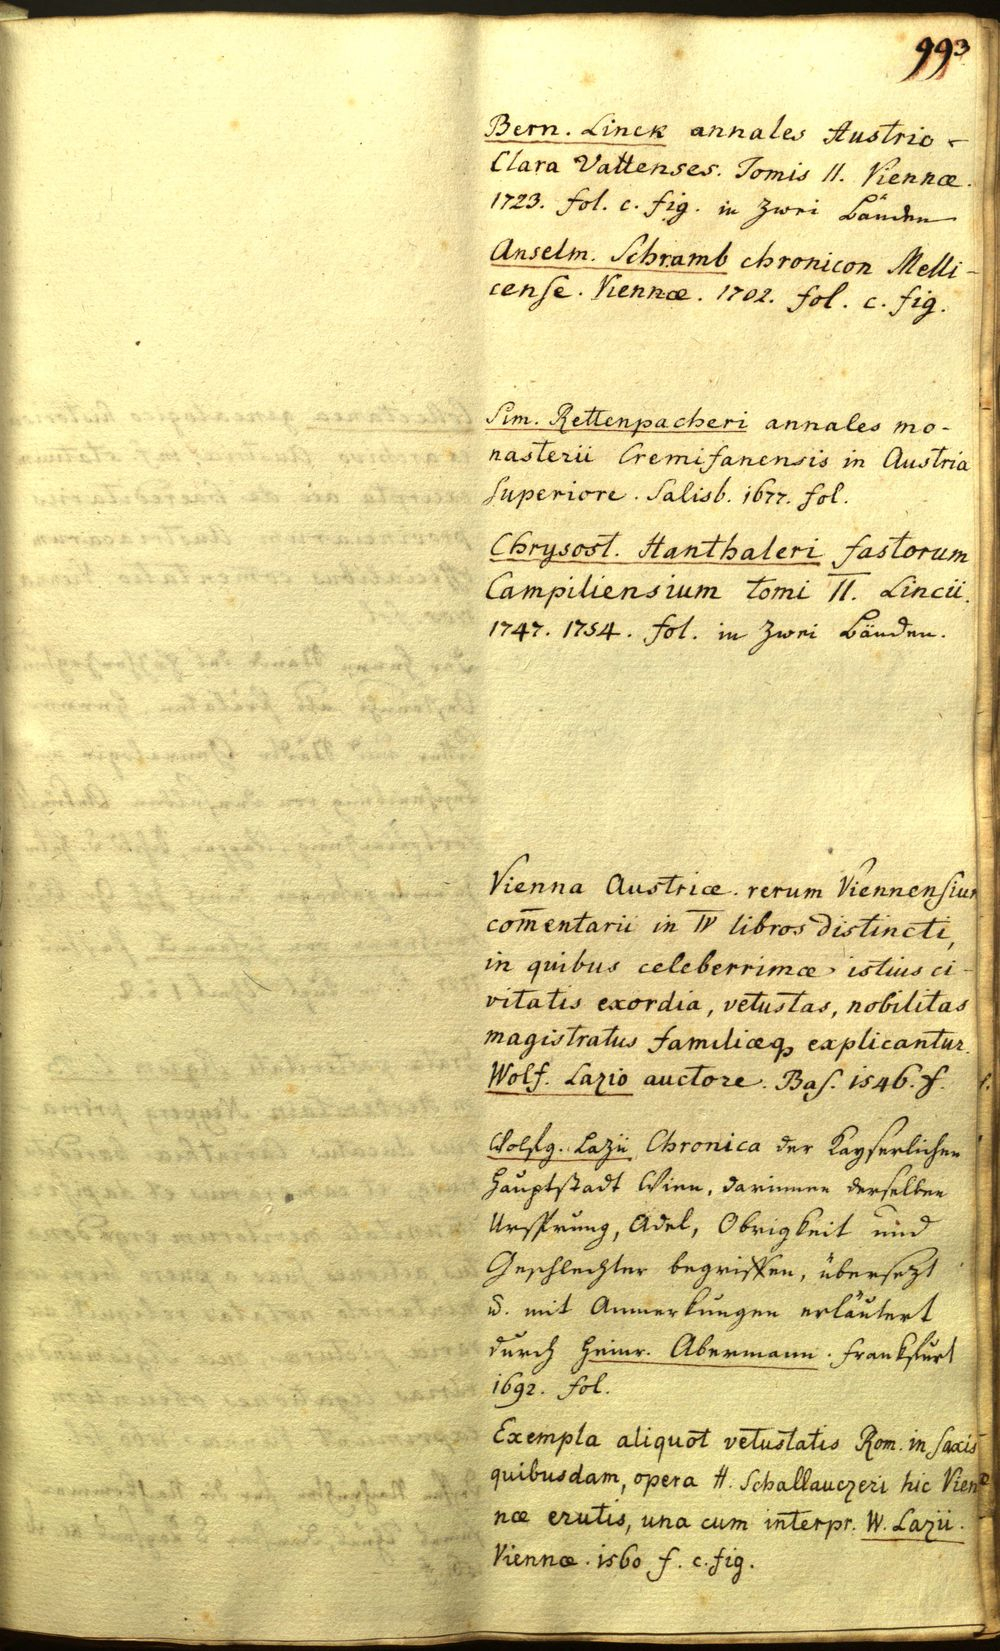 993
Bern. Linck annales Austrio-
Clara Vallenses. Tomis II. Viennæ.
1723. fol. c. fig. in zwei Bänden
Anselm. Schramb chronicon Melli-
cense. Viennæ. 1702. fol. c. fig.
Sim. Rettenpacheri annales mo-
nasterii Cremifanensis in Austria
Superiore. Salisb. 1677. fol.
Chrysost. Hanthaleri fastorum
Campiliensium tomi II. Lincii.
1747. 1754. fol. in zwei Bänden.
Vienna Austriæ. rerum Viennensium
com̅entarii in IV libros distincti,
in quibus celeberrimæ istius ci-
vitatis exordia, vetustas, nobilitas
magistratus familiæq, explicantur.
Wolf. Lazio auctore. Bas. 1546. f.
Wolfg. Lazii Chronica der Kayserlichen
Hauptstadt Wien, darinnen derselben
Ursprung, Adel, Obrigkeit und
Geschlechter begriffen, übersezt
u. mit Anmerkungen erläutert
durch Heinr. Abermann. Frankfurt
1692. fol.
Exempla aliquot vetustatis Rom. in saxis
quibusdam, opera H. Schallauczeri hic Vien
næ erutis, una cum interpr. W. Lazii.
Viennæ. 1560 f. c. fig.